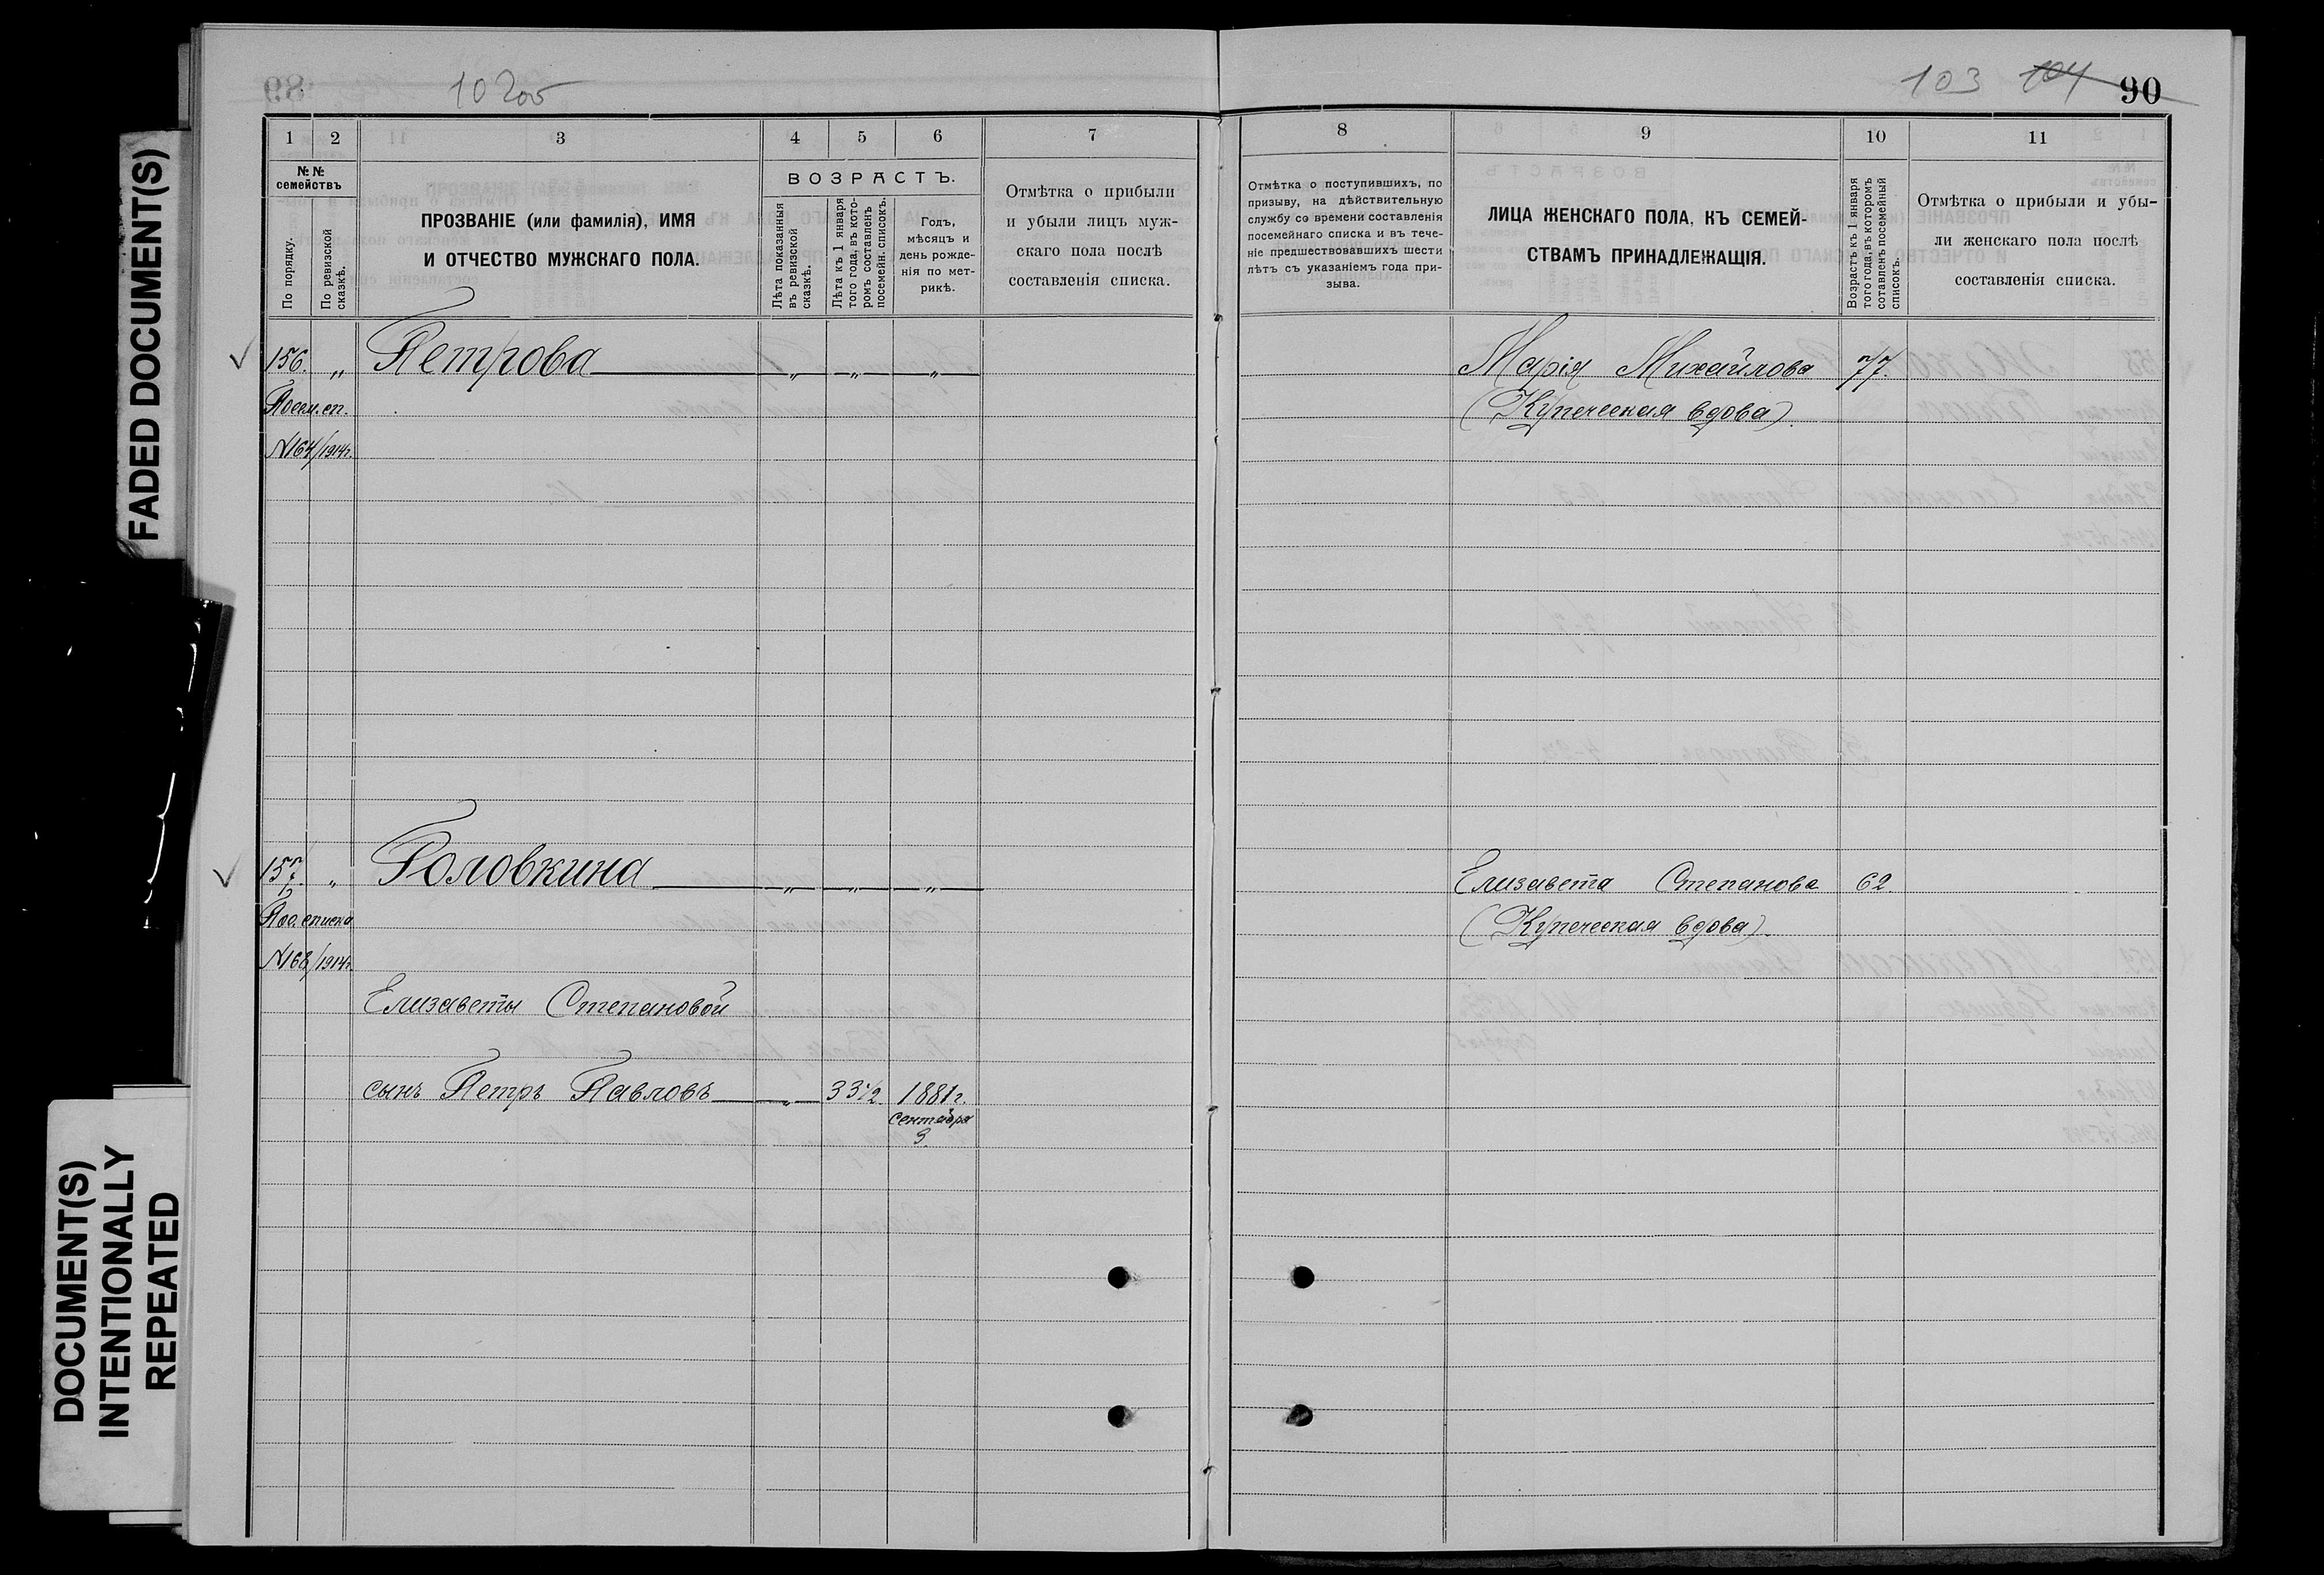 FADED DOCUMENT(S)
DOCUMENT(S)
INTENTIONALLY
REPEATED
102об
1 2 3 4 5 6 7
№№
семействъ
По порядку.
По ревизской сказкѣ.
ПРОЗВАНІЕ (или фамилія), ИМЯ
И ОТЧЕСТВО МУЖСКАГО ПОЛА.
ВОЗРАСТЪ.
Лѣта показанныя
въ ревизской
сказкѣ.
Лѣта къ 1 января
того года, въ кото-
ромъ составленъ
посемейн. списокъ.
Годъ,
мѣсяцъ и
день рожде-
нія по мет-
рикѣ.
Отмѣтка о прибыли
и убыли лицъ муж-
скаго пола послѣ
составленія списка.
156. „ Петрова „ „ „
Посем. сп.
№164/1914г.
157. „ Головкина „ „ „
Пос. списка
№168/1914г.
Елизаветы Степановой
сынъ Петръ Павловъ „ 33 1/2 1881г.
сентября
9.
103 104 90
8 9 10 11
Отмѣтка о поступившихъ, по
призыву, на дѣйствительную
службу со времени составленія
посемейнаго списка и въ тече-
ніе предшествовавшихъ шести
лѣтъ съ указаніемъ года при-
зыва.
ЛИЦА ЖЕНСКАГО ПОЛА, КЪ СЕМЕЙ-
СТВАМЪ ПРИНАДЛЕЖАЩІЯ.
Возрастъ къ 1 января
того года, въ которомъ
сотавленъ посемейный
списокъ.
Отмѣтка о прибыли и убы-
ли женскаго пола послѣ
составленія списка.
Марія Михайлова 77.
(Купеческая вдова).
Елизавета Степанова 62.
(Купеческая вдова).